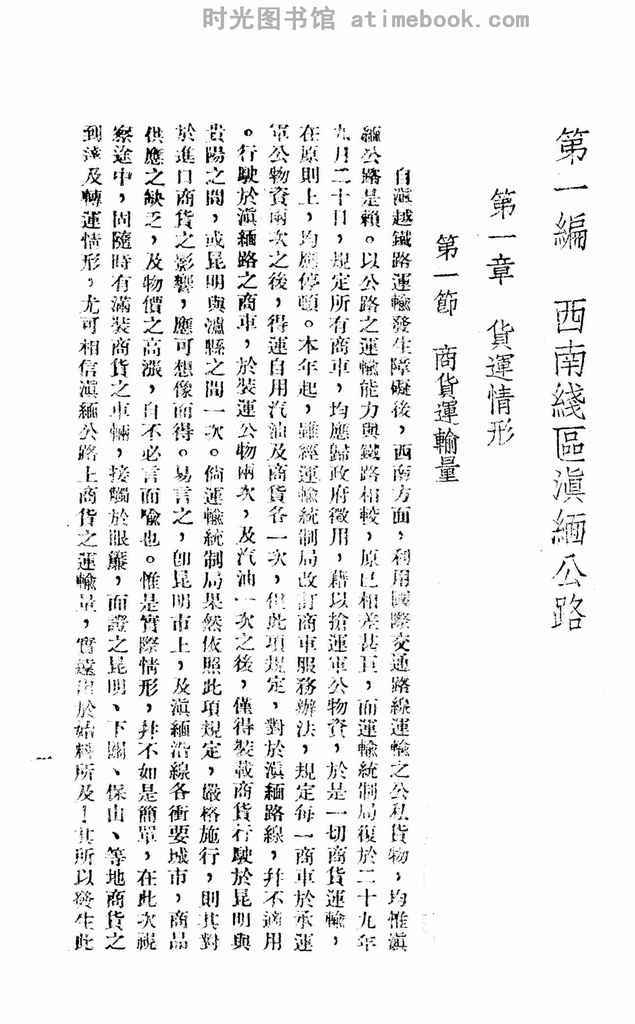 时光图书馆 atimebook.com
第一編　西南綫區滇緬公路
第一章　貨運情形
第一節　商貨運輸量
自滇越鐵路運輸發生障礙後，西南方面，利用國際交通路線運輸之公私貨物，均惟滇
緬公路是賴。以公路之運輸能力與鐵路相較，原已相差甚巨，而運輸統制局復於二十九年
九月二十日，規定所有商車，均應歸政府徵用，藉以搶運軍公物資，於是一切商貨運輸，
在原則上，均應停頓。本年起，雖經運輸統制局改訂商車服務辦法，規定每一商車於承運
軍公物資兩次之後，得運自用汽油及商貨各一次，但此項規定，對於滇緬路線，幷不適用
。行駛於滇緬路之商車，於裝運公物兩次，及汽油一次之後，僅得裝載商貨行駛於昆明與
貴陽之間，或昆明與瀘縣之間一次。倘運輸統制局果然依照此項規定，嚴格施行，則其對
於進口商貨之影響，應可想像而得。易言之，卽昆明市上，及滇緬沿線各衝要城市，商品
供應之缺乏，及物價之高漲，自不必言而喩也。惟是實際情形，幷不如是簡單，在此次視
察途中，固隨時有滿裝商貨之車輛，接觸於眼簾，而證之昆明、下關、保山、等地商貨之
到達及轉運情形，尤可相信滇緬公路上商貨之運輸量，實遠出於始料所及！其所以發生此
一